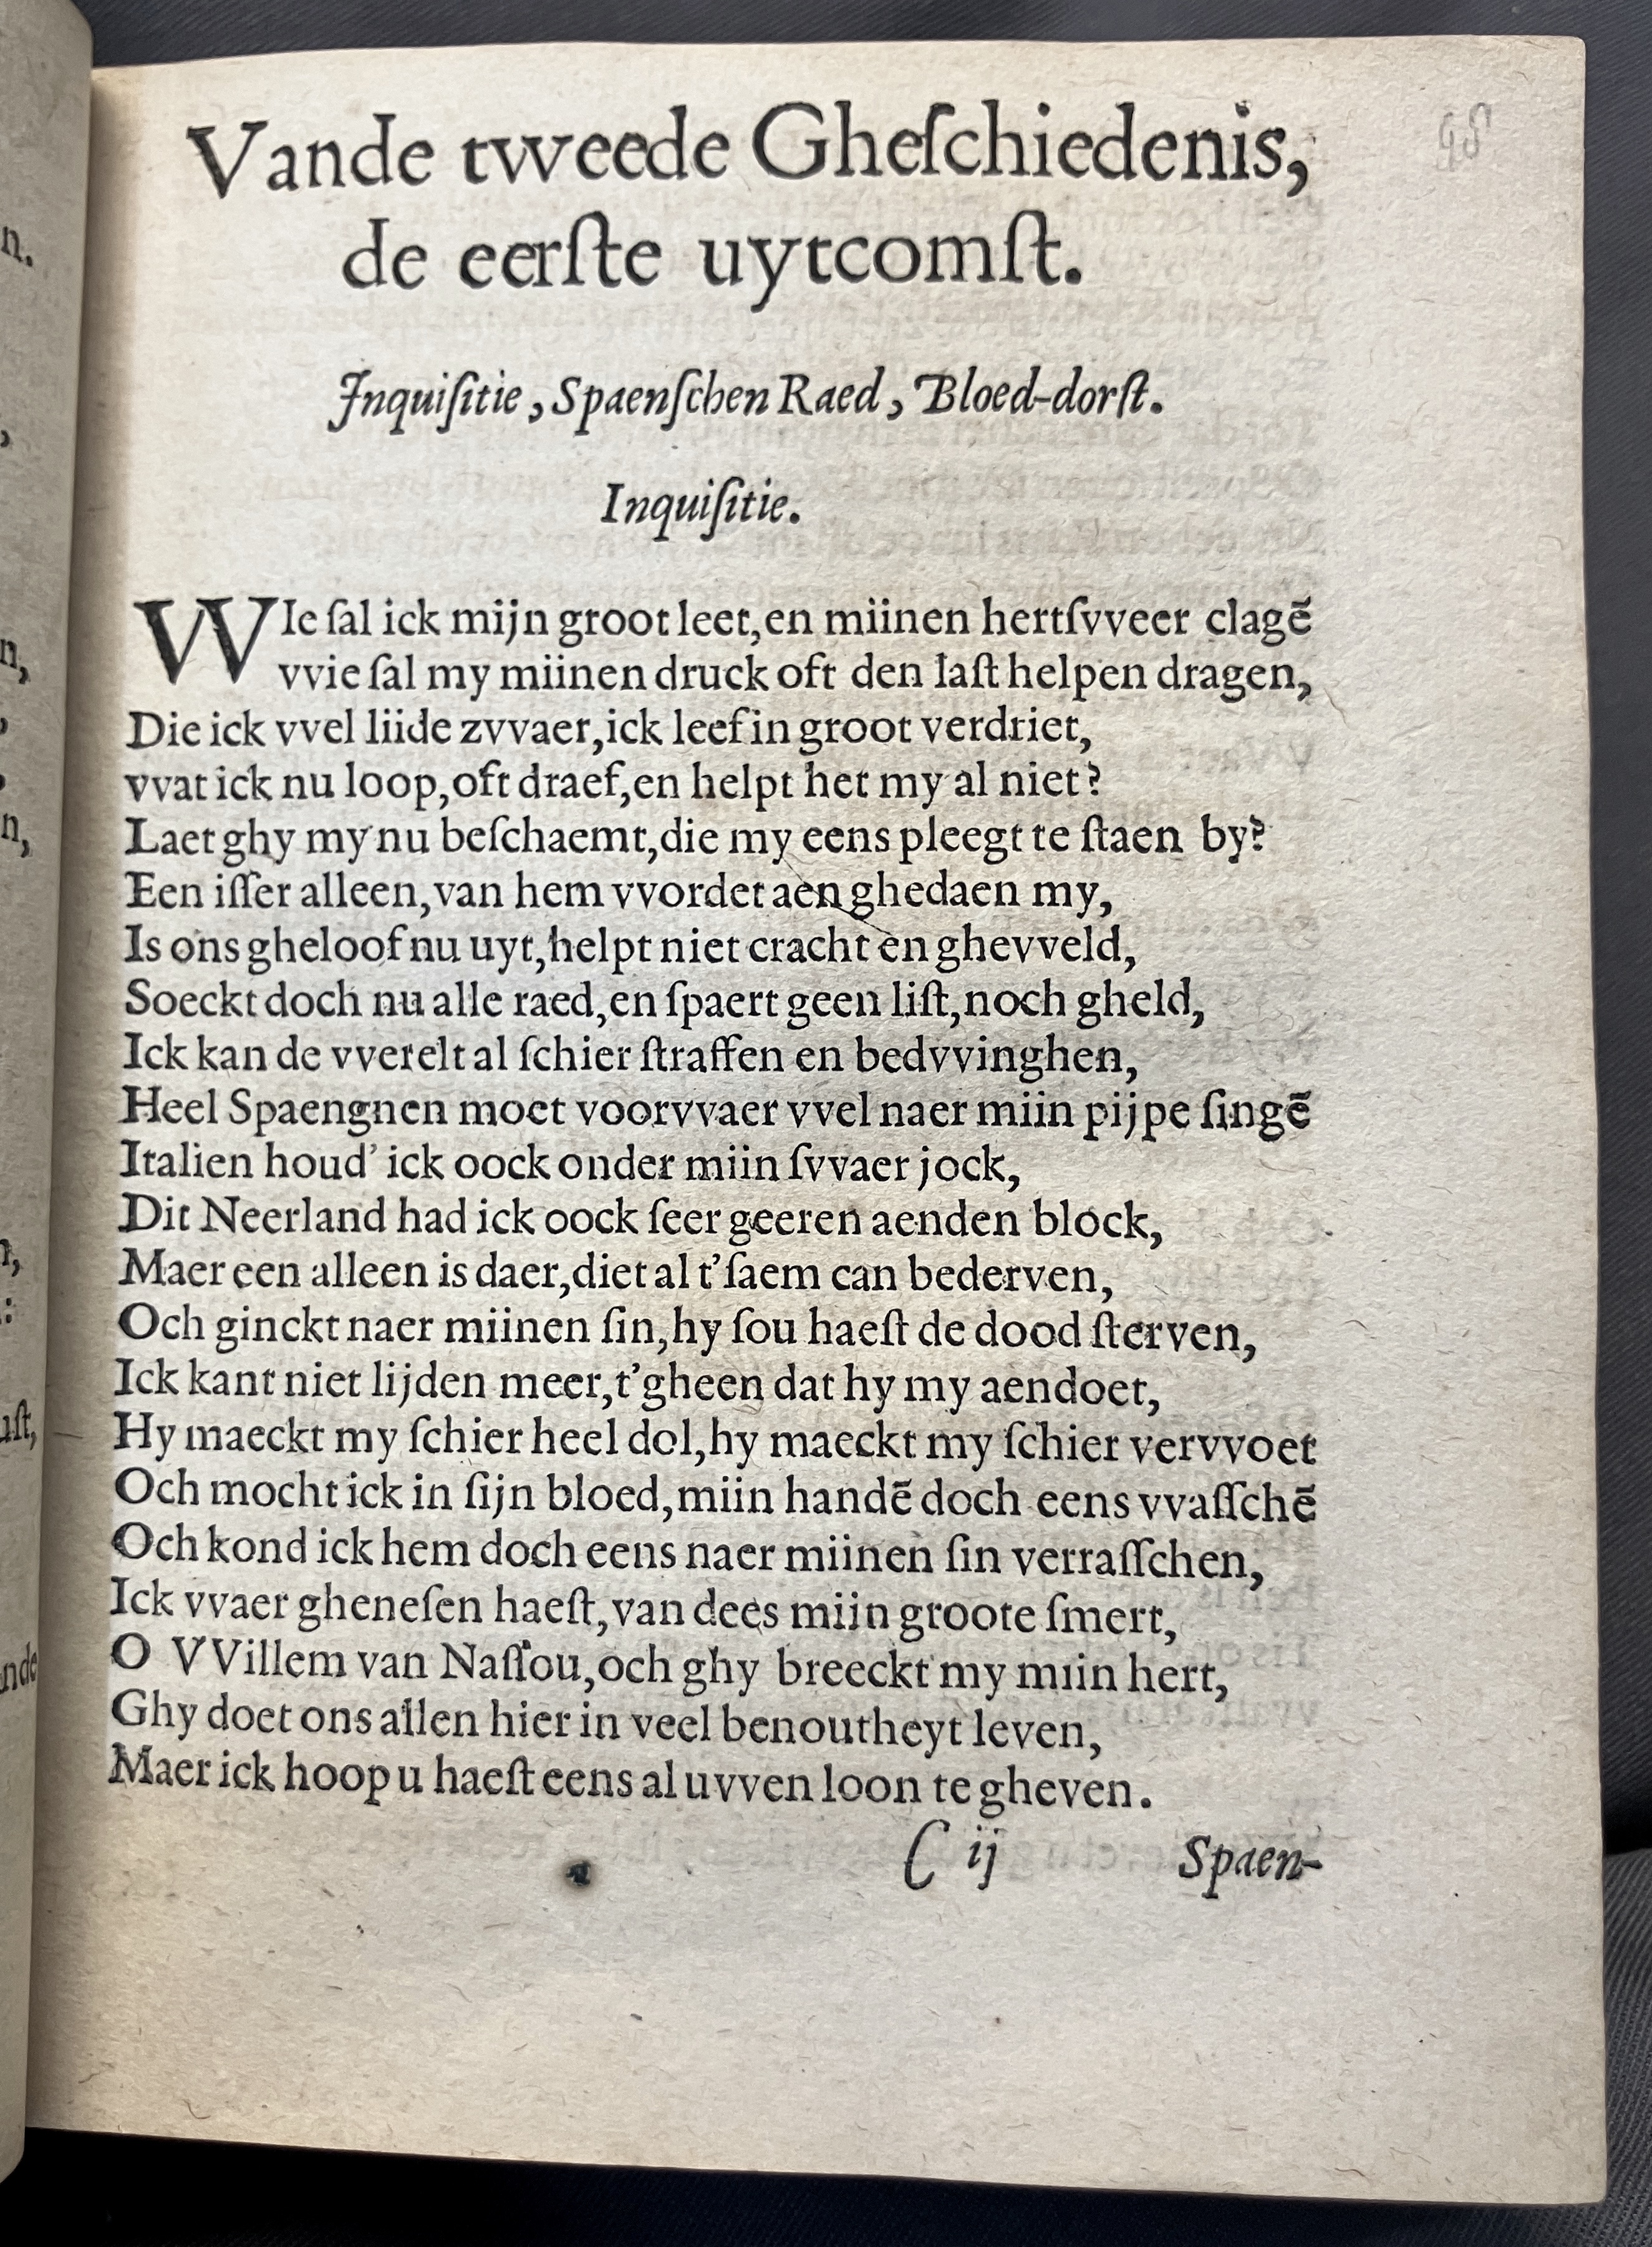 48
Vande tvveede Gheſchiedenis,
de eerſte uytcomſt.
Inquiſitie, Spaenſchen Raed, Bloed-dorſt.
Inquiſitie.
WIe ſal ick mijn groot leet, en miinen hertſvveer clagē
vvie ſal my miinen druck oft den laſt helpen dragen,
Die ick vvel liide zvvaer, ick leef in groot verdriet,
vvat ick nu loop, oft draef, en helpt het my al niet?
Laet ghy my nu beſchaemt, die my eens pleegt te ſtaen by?
Een iſſer alleen, van hem vvordet aen ghedaen my,
Is ons gheloof nu uyt, helpt niet cracht en ghevveld,
Soeckt doch nu alle raed, en ſpaert geen liſt, noch gheld,
Ick kan de vverelt al ſchier ſtraffen en bedvvinghen,
Heel Spaengnen moet voorvvaer vvel naer miin pijpe ſingē
Italien houd' ick oock onder miin ſvvaer jock,
Dit Neerland had ick oock ſeer geeren aenden block,
Maer een alleen is daer, diet al t'ſaem can bederven,
Och ginckt naer miinen ſin, hy ſou haeſt de dood ſterven,
Ick kant niet lijden meer, t'gheen dat hy my aendoet,
Hy maeckt my ſchier heel dol, hy maeckt my ſchier vervvoet
Och mocht ick in ſijn bloed, miin handē doch eens vvaſſchē
Och kond ick hem doch eens naer miinen ſin verraſſchen,
Ick vvaer gheneſen haeſt, van dees miin groote ſmert,
O VVillem van Naſſou, och ghy breeckt my miin hert,
Ghy doet ons allen hier in veel benoutheyt leven,
Maer ick hoop u haeſt eens al uvven loon te gheven.
C ij Spaen-